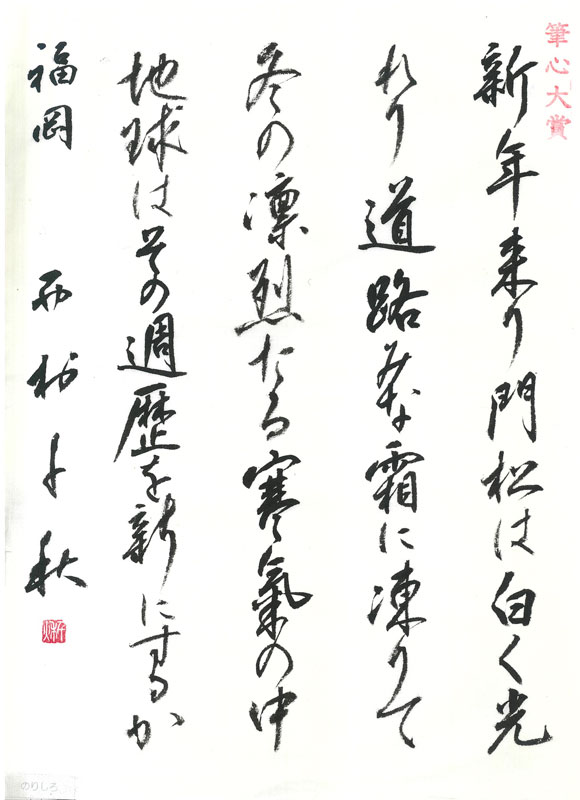 筆心大賞
新年来り門松は白く光
れり道路みな霜に凍りて
冬の凛烈たる寒氣の中
地球はその週歴を新にするか
福岡 西村千秋
のりしろ